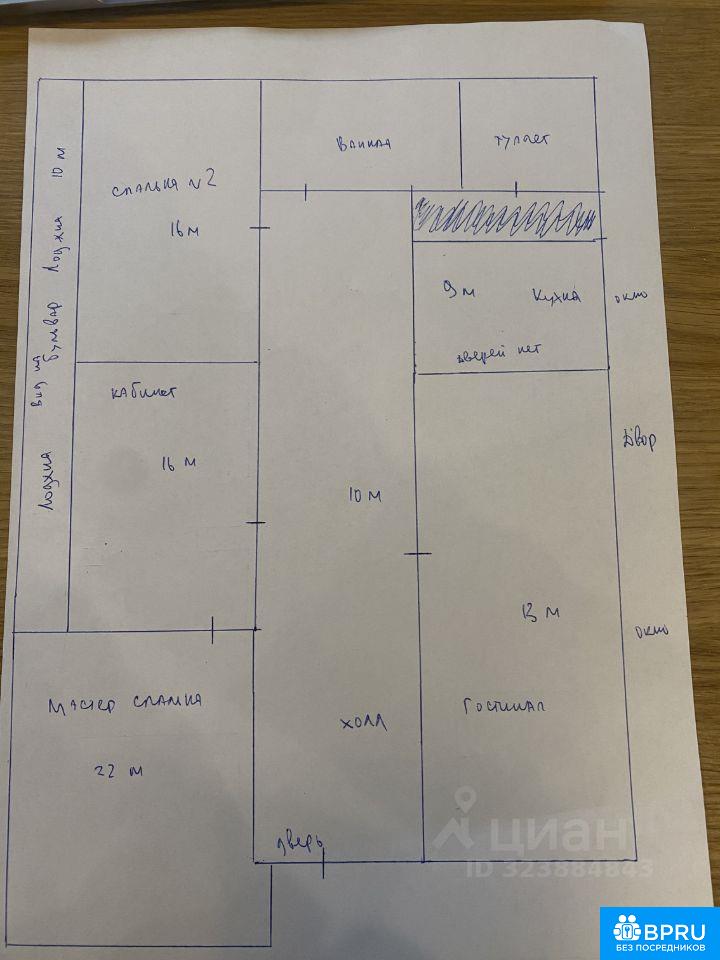 ванна
туалет
спальня №2
16 м
Лоджия вид на бульвар Лоджия 10 м
9 м кухня
дверей нет
окно
кабинет
16 м
10 м
Двор
13 м
окно
Мастер спальня
22 м
холл
Гостиная
дверь
циан
ID 323884843
BPRU
БЕЗ ПОСРЕДНИКОВ